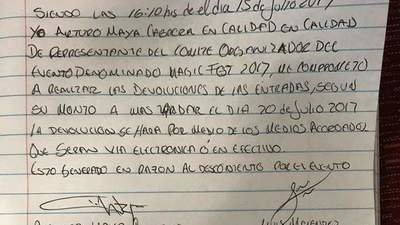 SIENDO LAS 16:10 hrs de el dia 15 de Julio 2017
YO ARTURO MAYA CABRERA EN CALIDAD EN CALIDAD
DE REPRESENTANTE DEL COMITE ORGANIZADOR DEL
EVENTO DENOMINADO MAGIC FEST 2017, ME COMPROMETO
A REALIZAR LAS DEVOLUCIONES DE LAS ENTRADAS, SEGUN
SU MONTO A MAS TARDAR EL DIA 20 DE JULIO 2017
LA DEVOLUCION SE HARA POR MEDIO DE LOS MEDIOS ACORDADOS
QUE SERAN VIA ELECTRONICA Ó EN EFECTIVO.
ESTO GENERADO EN RAZON AL DESCONTENTO POR EL EVENTO